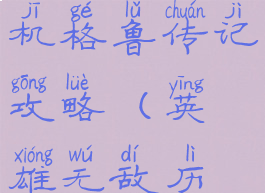 jī gé lǔ chuán jì
机格鲁传记
gōng lüè yīng
攻略（英
xióng wú dí lì
雄无敌历